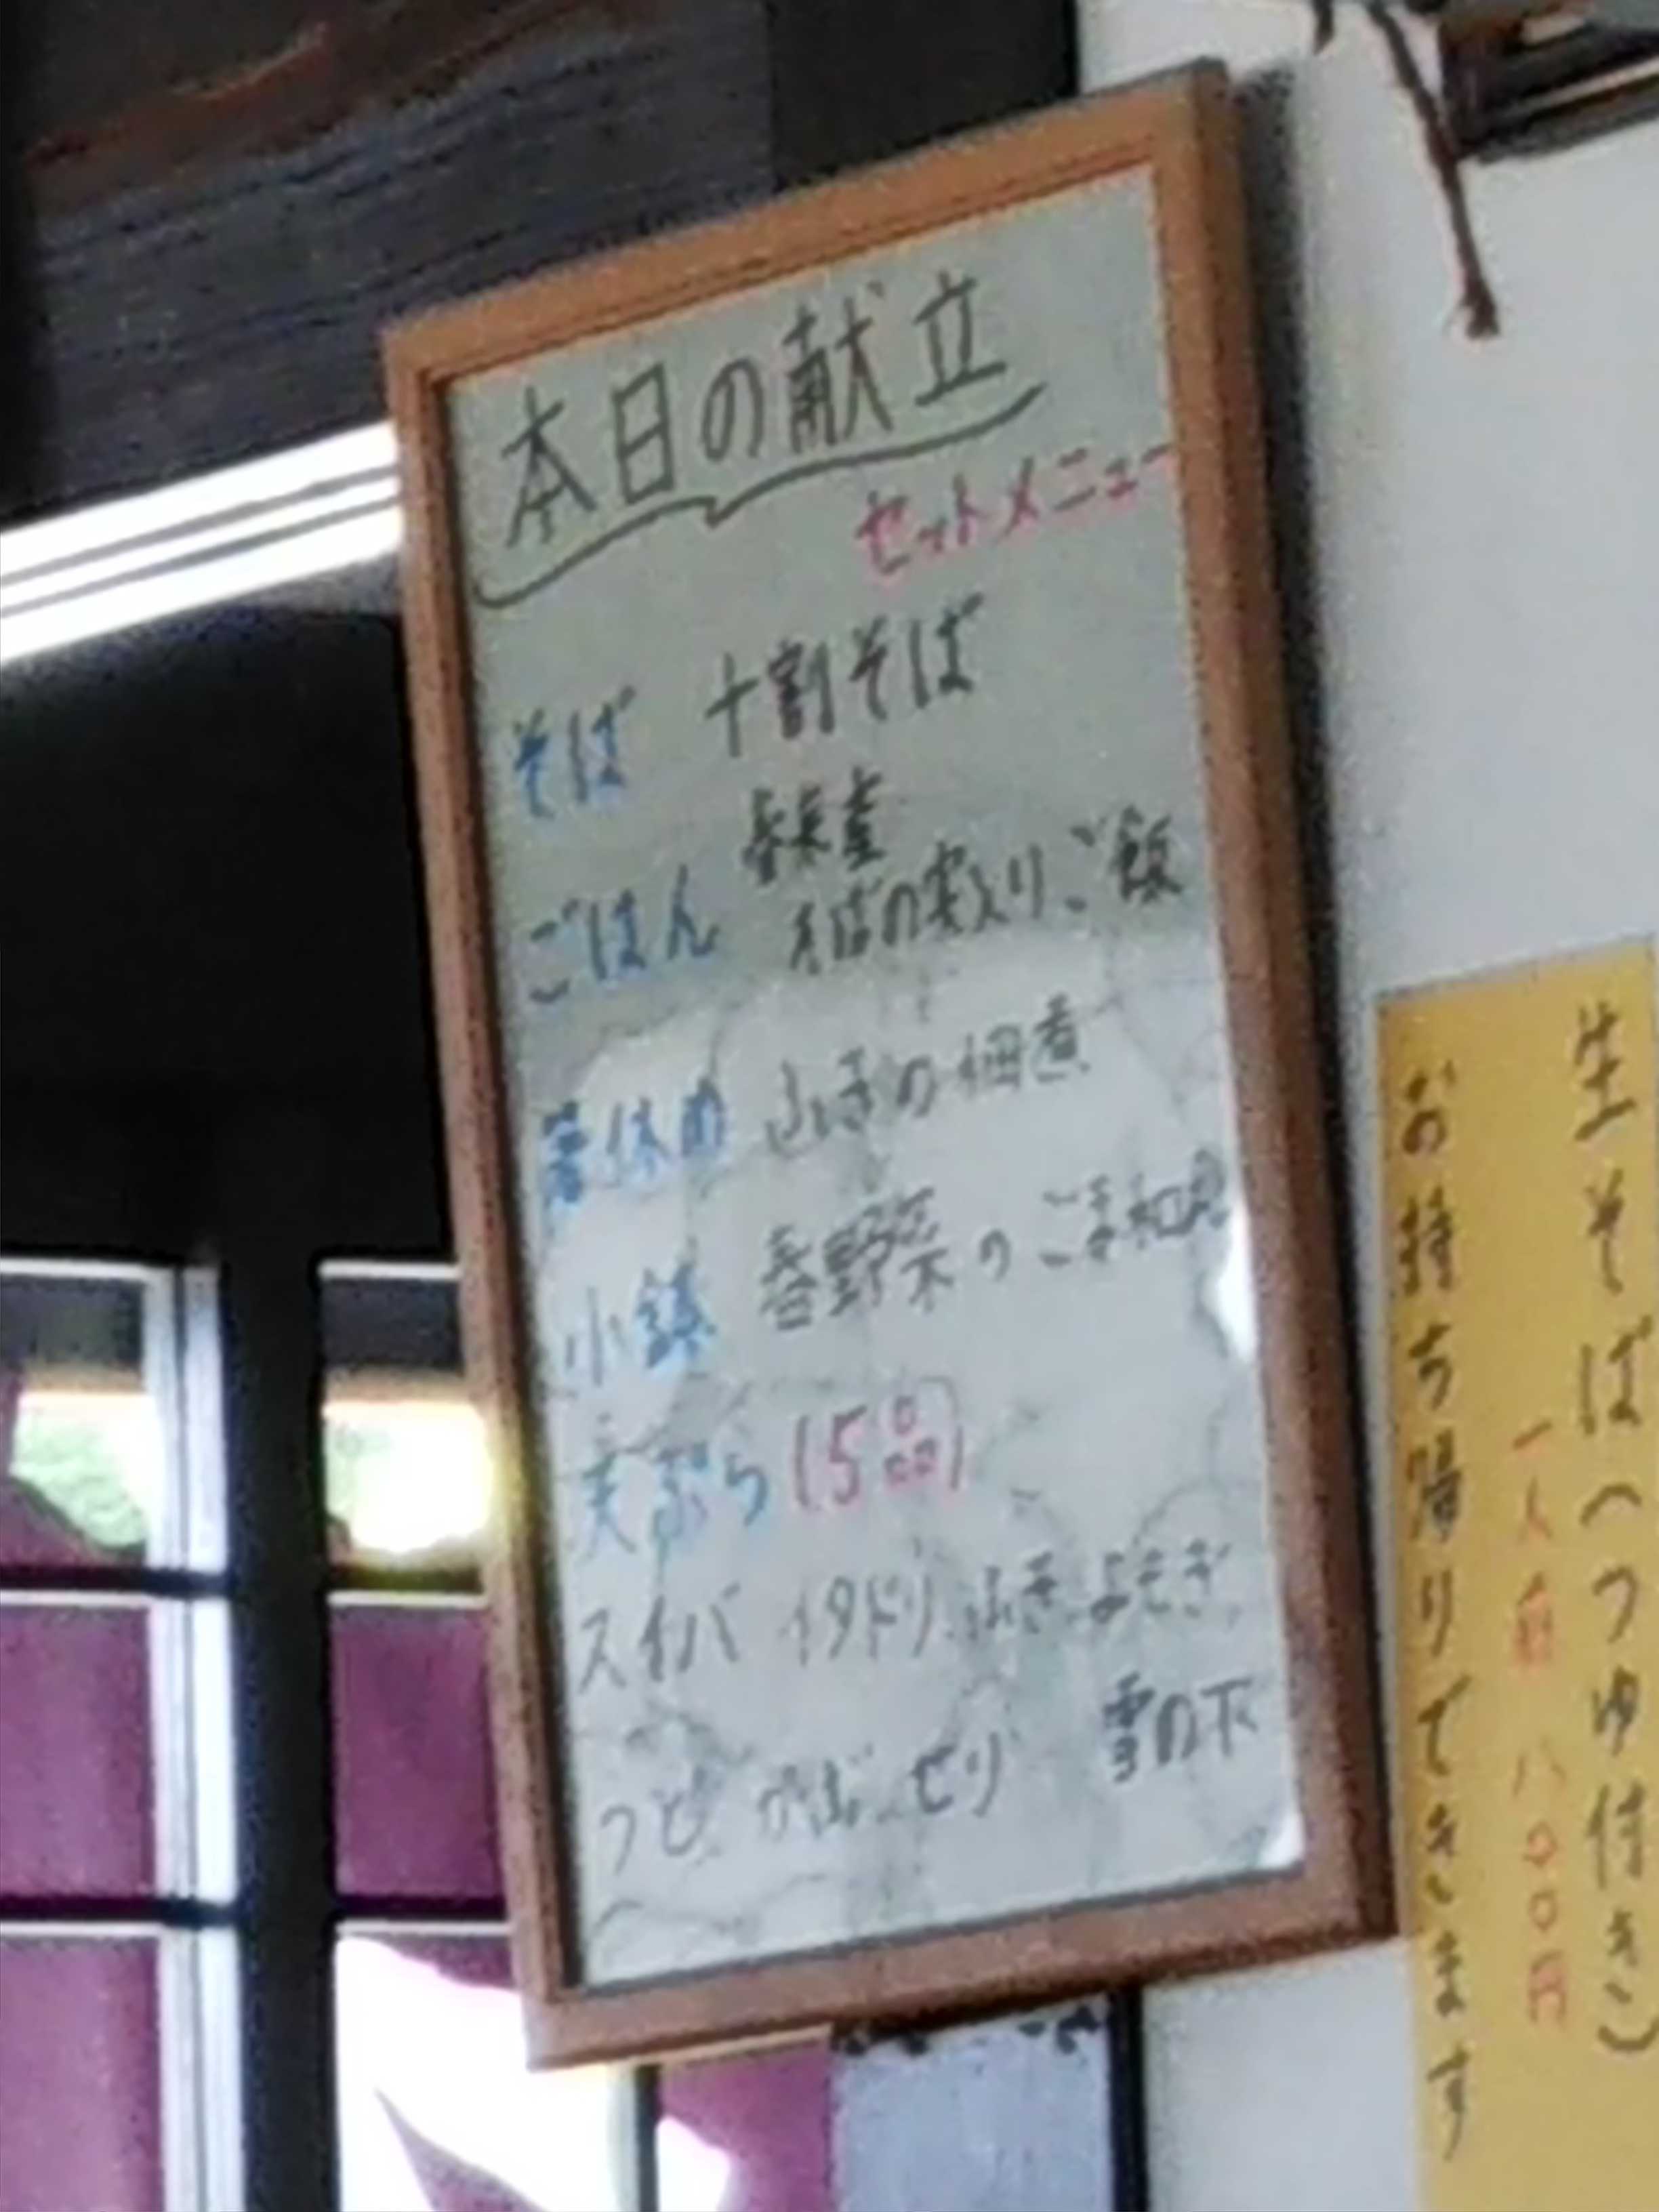 本日の献立
セットメニュー
そば 十割そば
ごはん そばの実入りご飯
箸休め 山ぶきの佃煮
小鉢 春野菜のごま和え
天ぷら(5品)
スイバ イタドリ 山ぶき よもぎ
うど せり 雪の下
生そば(つゆ付き)
一人前 八〇〇円
お持ち帰りできます